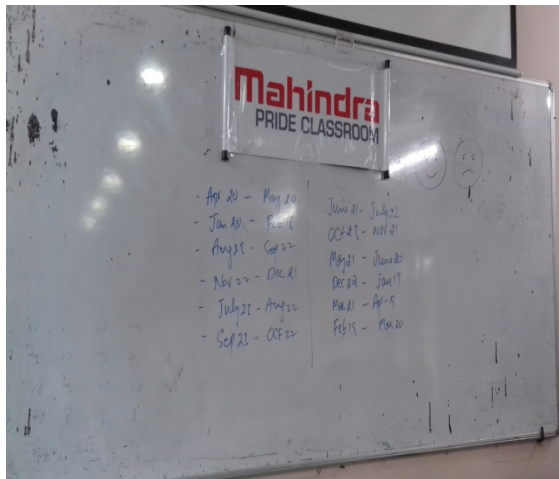 Mahindra
PRIDE CLASSROOM
- Apr 20 - May 20
- Jan 20 - Feb 18
- Aug 23 - Sep 22
- Nov 22 - Dec 21
- July 23 - Aug 22
- Sep 23 - OCT 22
June 21 - July 22
OCT 23 - Nov 21
May 21 - June 20
Dec 22 - Jan 19
Mar 21 - Apr 9
Feb 19 - Mar 20